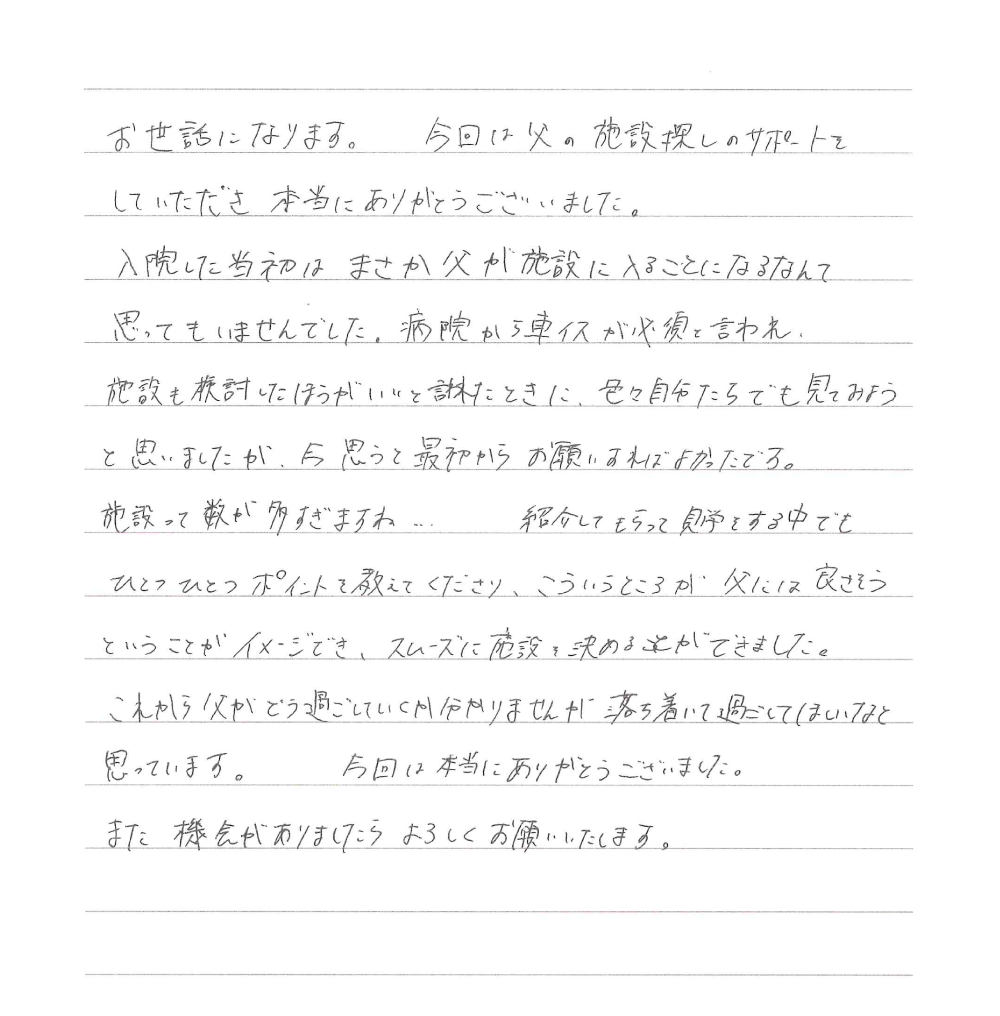 お世話になります。 今回は父の施設探しのサポートを
していただき 本当にありがとうございました。
入院した当初は まさか父が施設に入ることになるなんて
思ってもいませんでした。病院から車イスが必須と言われ、
施設も検討したほうがいいと言われたときに、色々自分たちでも見てみよう
と思いましたが、今思うと最初からお願いすればよかったです。
施設って数が多すぎますね… 紹介してもらって見学をする中でも
ひとつひとつポイントを教えてくださり、こういうところが 父には良さそう
ということがイメージでき、スムーズに施設を決める事ができました。
これから父がどう過ごしていくか分かりませんが落ち着いて過ごしてほしいなと
思っています。 今回は本当にありがとうございました。
また機会がありましたらよろしくお願いいたします。